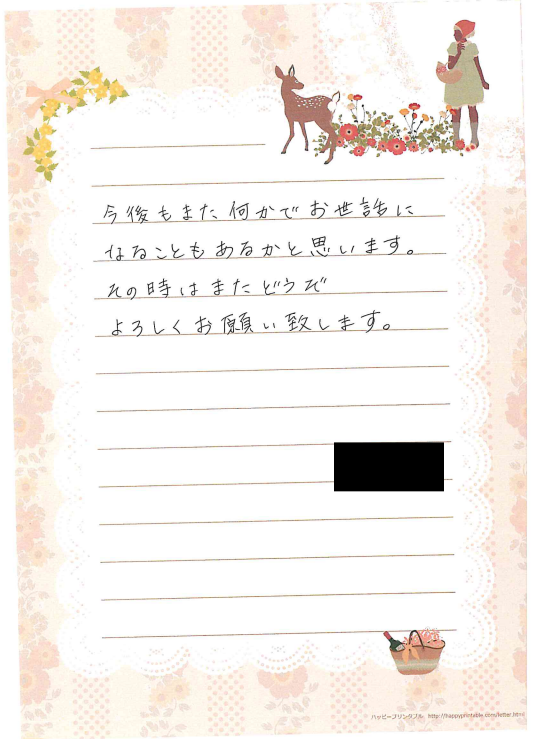 今後もまた何かでお世話に
なることもあるかと思います。
その時はまたどうぞ
よろしくお願い致します。
ハッピープリンタブル http://happyprintable.com/letter.html